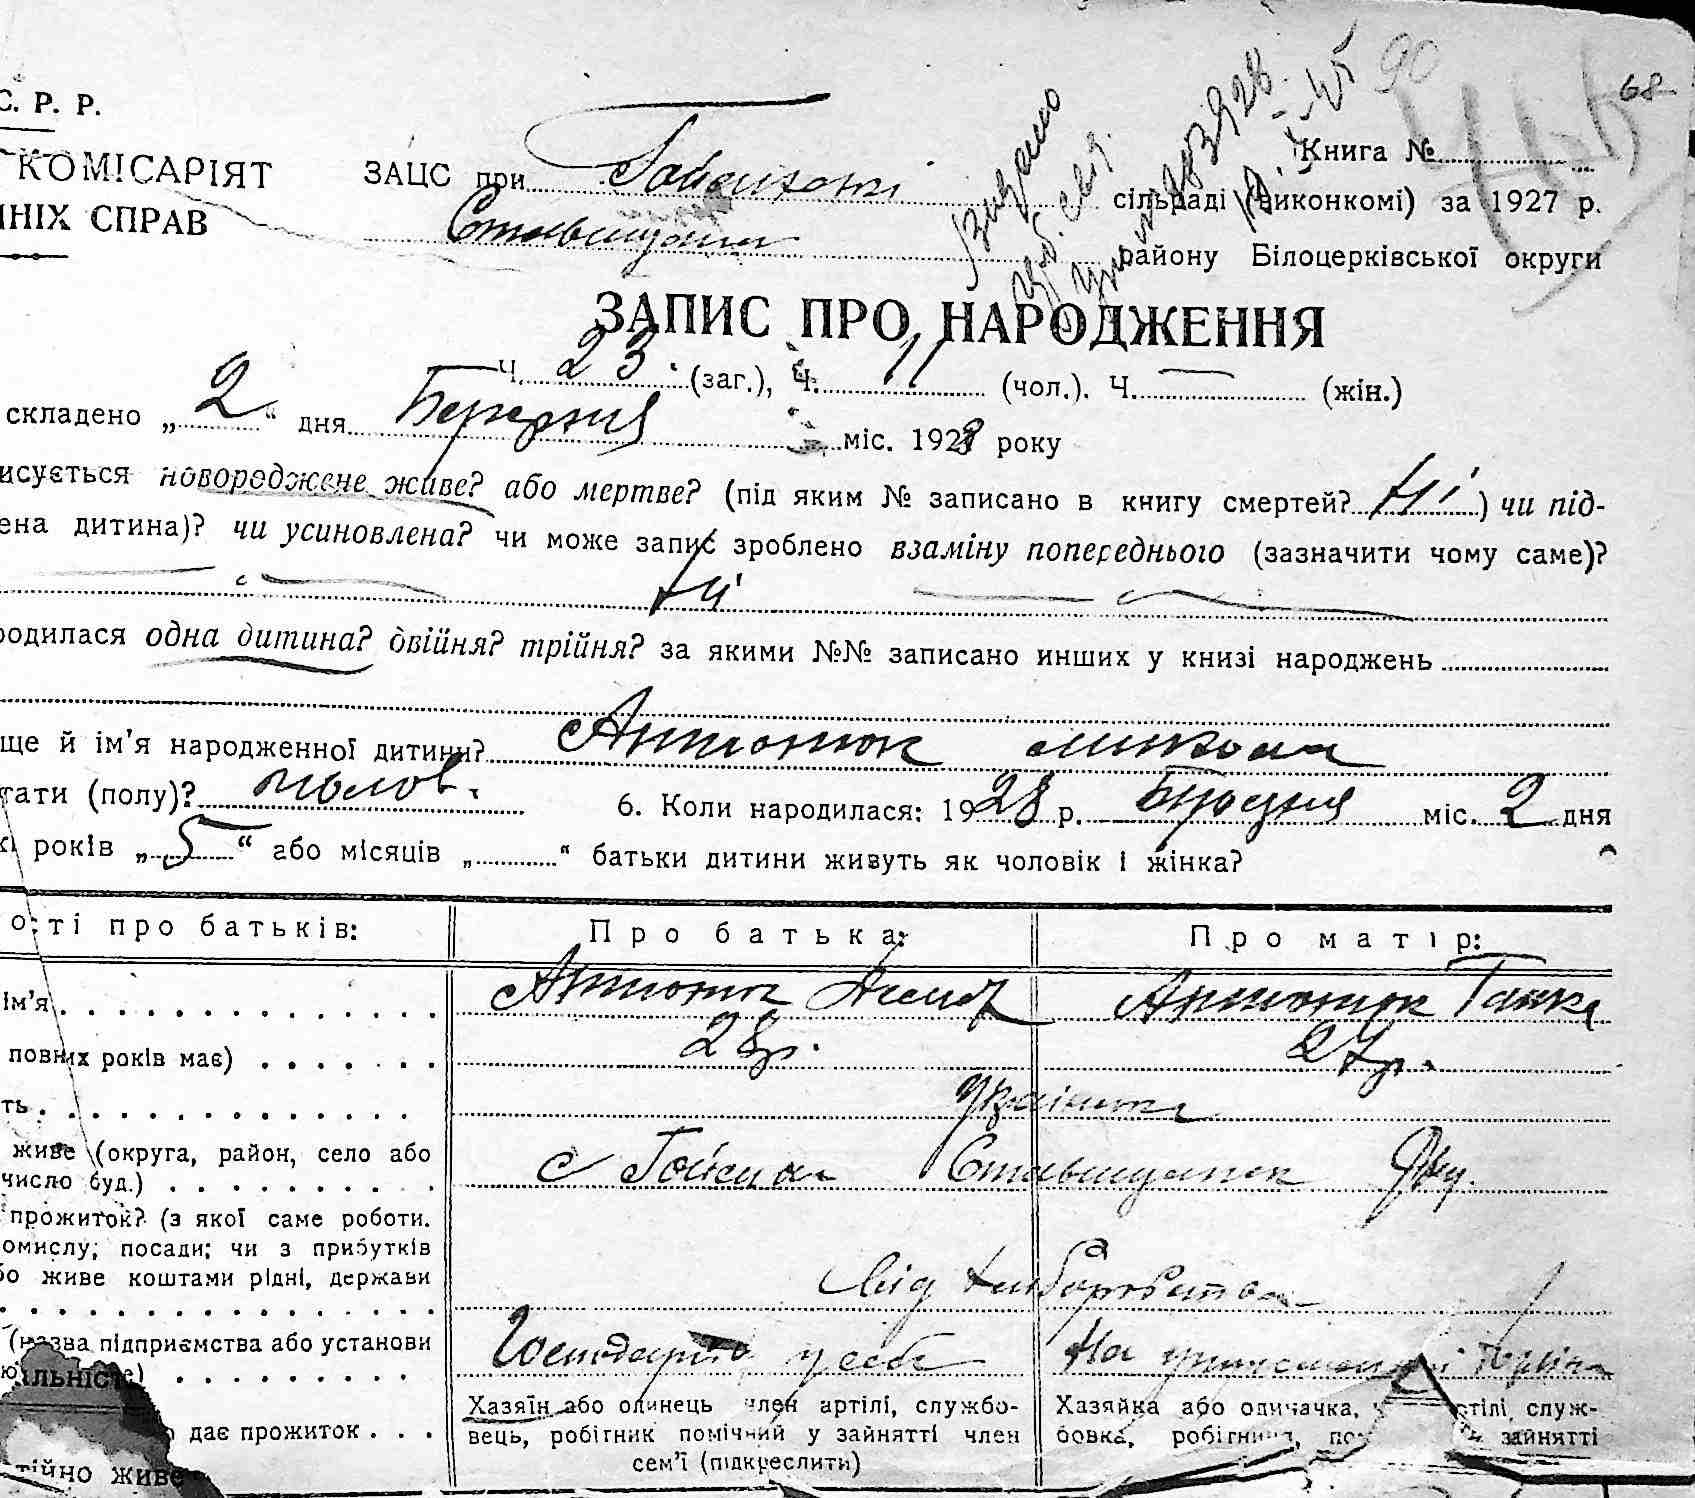 С. Р. Р.
КОМІСАРІЯТ
НІХ СПРАВ
68
90
Видано
Книга №
ЗАЦС при
сільраді (виконкомі) за 1927 р.
району Білоцерківської округи
ЗАПИС ПРО НАРОДЖЕННЯ
Ч. 23 (заг.), Ч. 11 (чол.). Ч. — (жін.)
складено „ 2 “ дня Березня міс. 1928 року
исується новороджене живе? або мертве? (під яким № записано в книгу смертей? Ні ) чи під-
ена дитина)? чи усиновлена? чи може запис зроблено взаміну попереднього (зазначити чому саме)?
Ні
родилася одна дитина? двійня? трійня? за якими №№ записано инших у книзі народжень
ще й ім’я народженної дитини? Антонюк Микола
тати (полу)? чолов. 6. Коли народилася: 1928 р. Березня міс. 2 дня
кі років „ 5 “ або місяців „ “ батьки дитини живуть як чоловік і жінка?
ості про батьків: Про батька: Про матір:
ім’я Антонюк Антонюк Ганна
повних років має) 28 р. 27 р.
ть
живе (округа, район, село або
число буд.) с Гейсиха Ставищанск
прожиток? (з якої саме роботи.
омислу; посади; чи з прибутків
бо живе коштами рідні, держави
від хліборобства
(назва підприємства або установи
Господарство у себе На
альність)
дає прожиток
Хазяїн або одинець член артілі, службо-
вець, робітник помічний у зайнятті член
сем’ї (підкреслити)
Хазяйка або одиначка, ртілі, служ-
бовка, робітниця, зайнятті
тійно живе